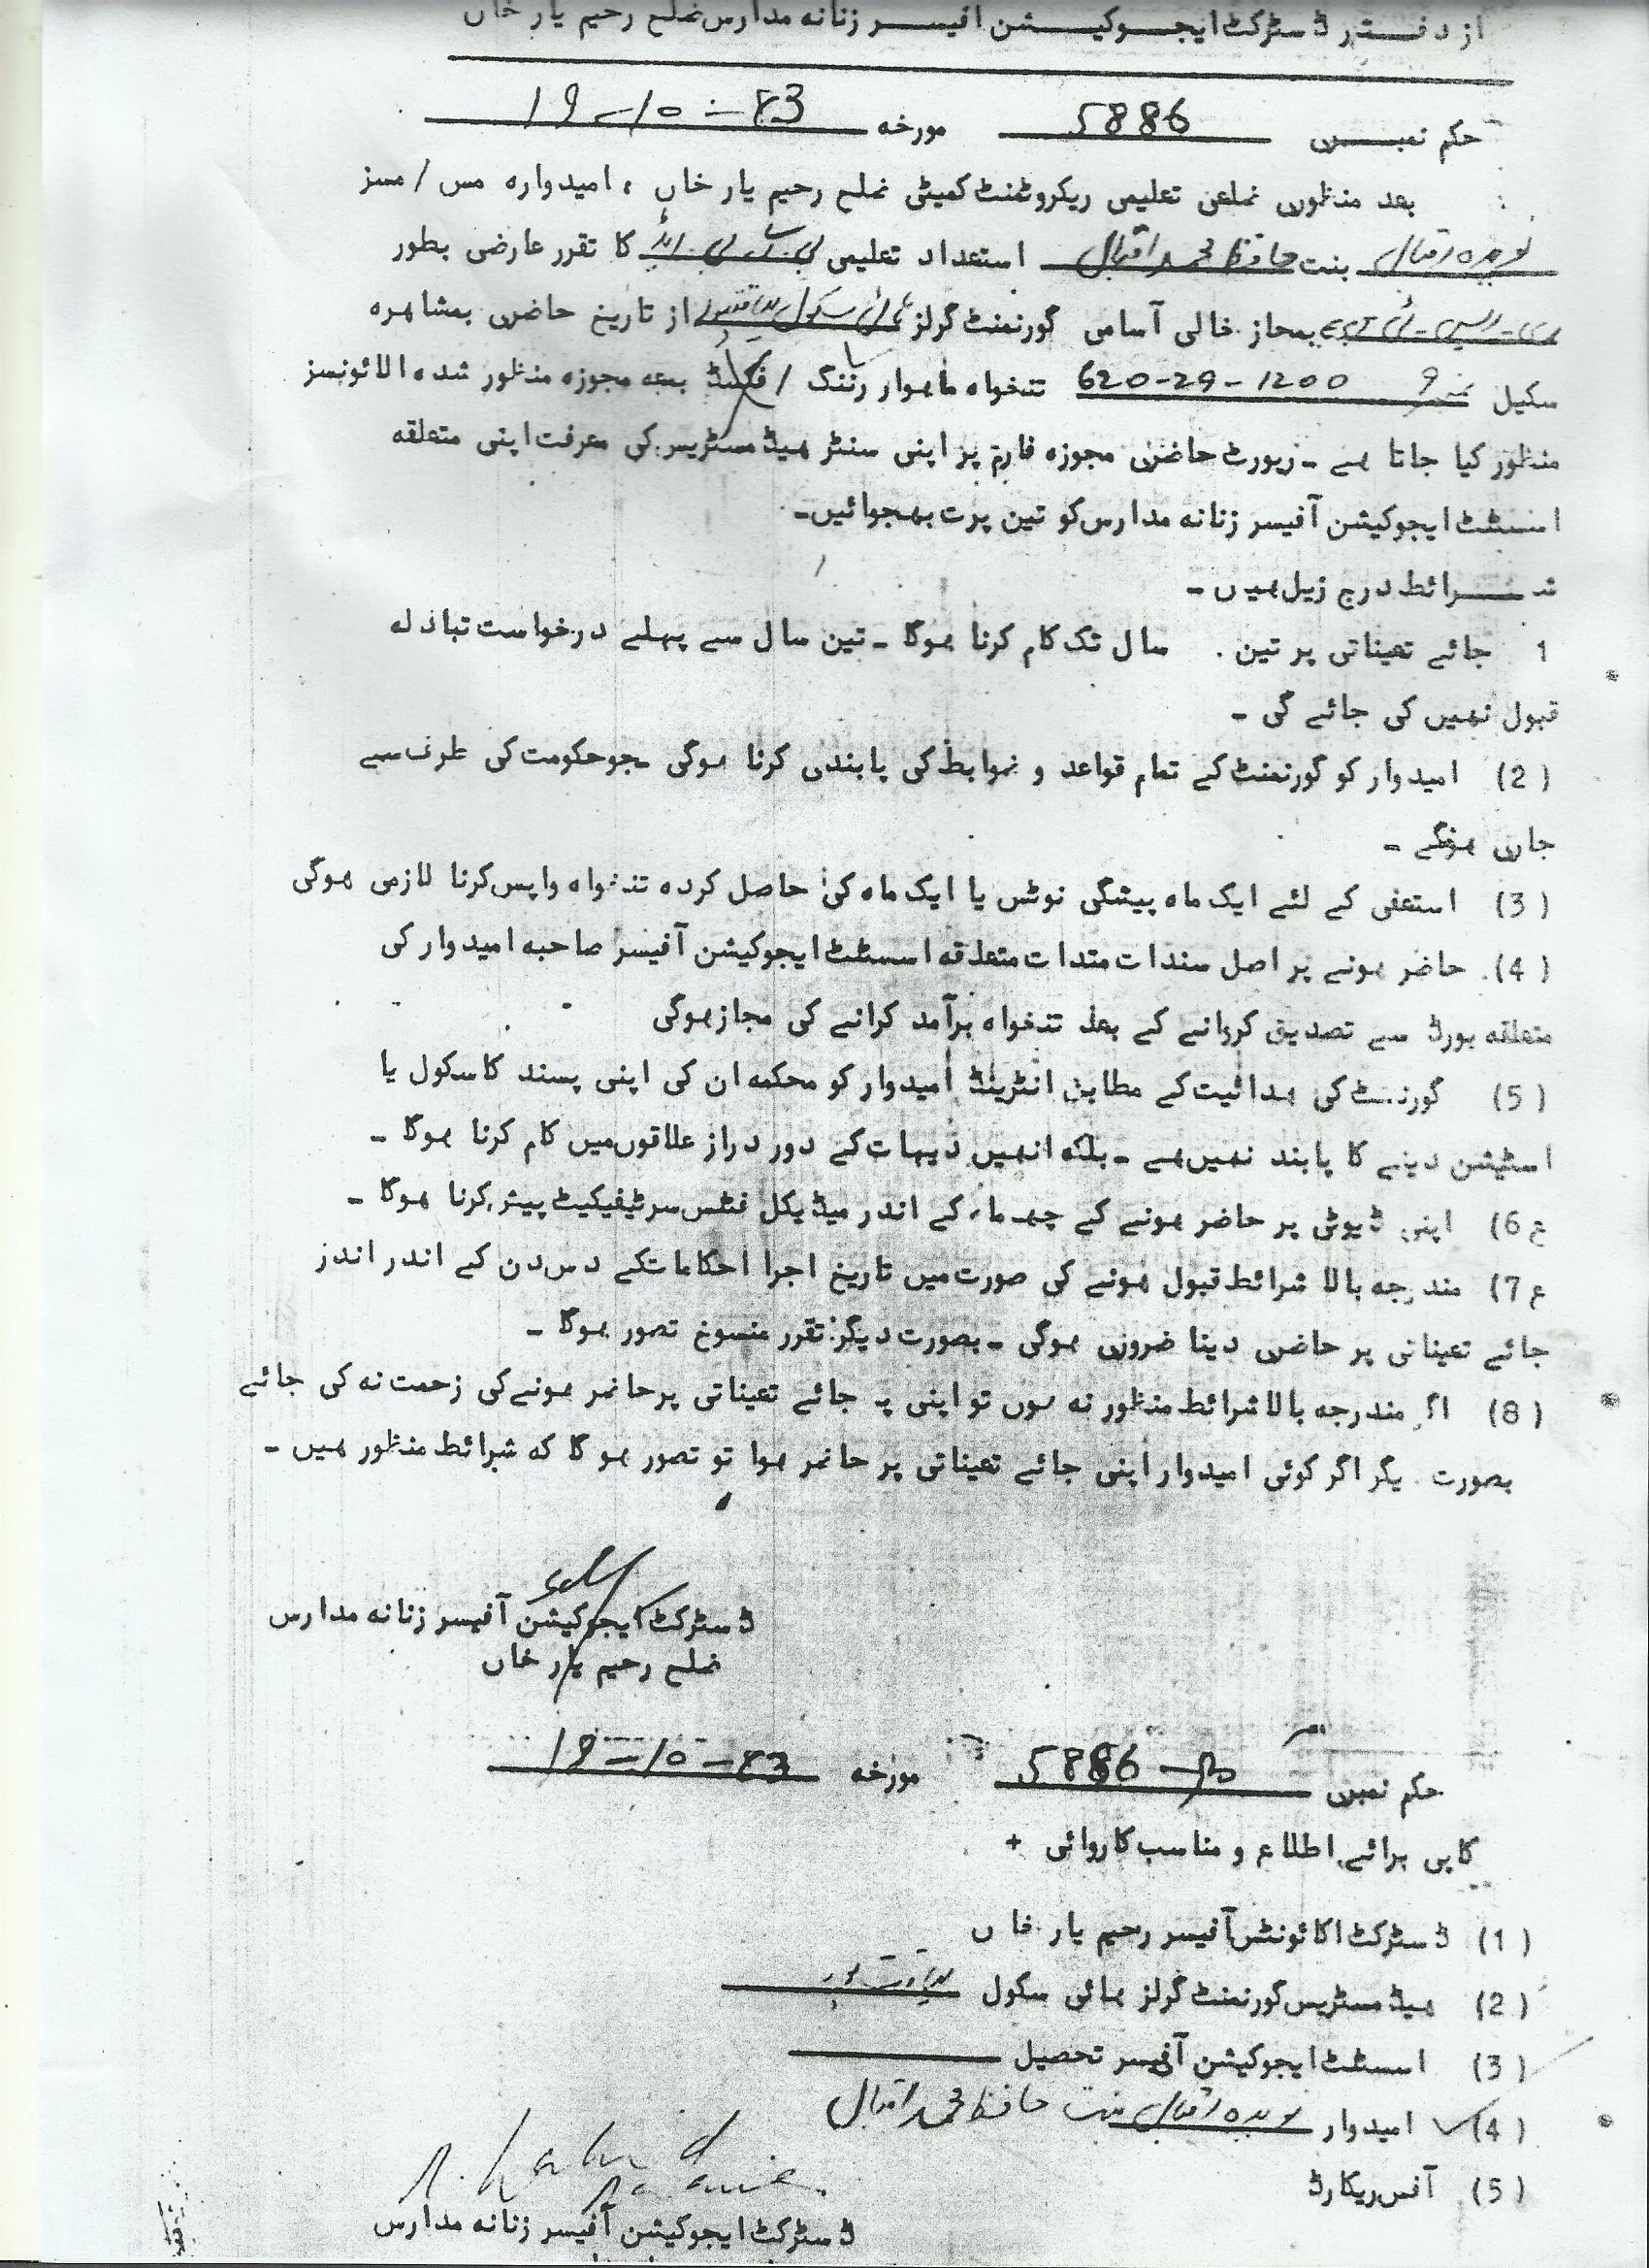 از دفتر ڈسٹرکٹ ایجوکیشن آفیسر زنانہ مدارس ضلع رحیم یار خاں
حکم نمبری 5886 مورخہ 19-10-83
بعد منظوری ضلعی تعلیمی ریکروٹمنٹ کمیٹی ضلع رحیم یار خاں ، امیدوارہ مس / مسز
نویدہ اقبال بنت حافظ محمد اقبال استعداد تعلیمی بی۔اے۔بی۔ایڈ کا تقرر عارضی بطور
بمحاز خالی آسامی گورنمنٹ گرلز ہائی سکول از تاریخ حاضری بمشاہرہ
سکیل نمبر 9 620-29-1200 تنخواہ ماہوار رننگ / فکسڈ بمعہ مجوزہ منظور شدہ الائونسز
منظور کیا جاتا ہے ۔ رپورٹ حاضری مجوزہ فارم پر اپنی سنٹر ہیڈ مسٹریس کی معرفت اپنی متعلقہ
اسسٹنٹ ایجوکیشن آفیسر زنانہ مدارس کو تین پرت بھجوائیں۔
شرائط درج زیل ہیں ۔
1 جائے تعیناتی پر تین . سال تک کام کرنا ہوگا ۔ تین سال سے پہلے درخواست تبادلہ
قبول نہیں کی جائے گی ۔
(2) امیدوار کو گورنمنٹ کے تمام قواعد و ضوابط کی پابندی کرنا ہوگی ۔جو حکومت کی طرف سے
جاری ہونگے ۔
(3) استعفی کے لئے ایک ماہ پیشگی نوٹس یا ایک ماہ کی حاصل کردہ تنخواہ واپس کرنا لازمی ہوگی
(4) حاضر ہونے پر اصل سندات متدات متعلقہ اسسٹنٹ ایجوکیشن آفیسر صاحبہ امیدوار کی
متعلقہ بورڈ سے تصدیق کروانے کے بعد تنخواہ برآمد کرانے کی مجاز ہوگی
(5) گورنمنٹ کی ہدائیت کے مطابق انٹرینڈ امیدوار کو محکمہ ان کی اپنی پسند کا سکول یا
اسٹیشن دینے کا پابند نہیں ہے ۔ بلکہ انہیں دیہات کے دور دراز علاقوں میں کام کرنا ہوگا ۔
ع 6) اپنی ڈیوٹی پر حاضر ہونے کے چھ ماہ کے اندر میڈیکل فٹنس سرٹیفیکیٹ پیش کرنا ہوگا ۔
ع 7) مندرجہ بالا شرائط قبول ہونے کی صورت میں تاریخ اجرا احکامات کے دس دن کے اندر اندر
جائے تعیناتی پر حاضری دینا ضروری ہوگی ۔ بصورت دیگر تقرر منسوخ تصور ہوگا ۔
(8) اگر مندرجہ بالا شرائط منظور نہ ہوں تو اپنی پہ جائے تعیناتی پر حاضر ہونے کی زحمت نہ کی جائے
بصورت یگر اگر کوئی امیدوار اپنی جائے تعیناتی پر حاضر ہوا تو تصور ہو گا کہ شرائط منظور ہیں ۔
ڈسٹرکٹ ایجوکیشن آفیسر زنانہ مدارس
ضلع رحیم یار خاں
حکم نمبری 5886 مورخہ 19-10-83
کاپی برائے اطلاع و مناسب کاروائی +
(1) ڈسٹرکٹ اکائونٹس آفیسر رحیم یار خاں
(2) ہیڈ مسٹریس گورنمنٹ گرلز ہائی سکول
(3) اسسٹنٹ ایجوکیشن آفیسر تحصیل
(4) امیدوار نویدہ اقبال بنت حافظ محمد اقبال
(5) آفس ریکارڈ
ڈسٹرکٹ ایجوکیشن آفیسر زنانہ مدارس